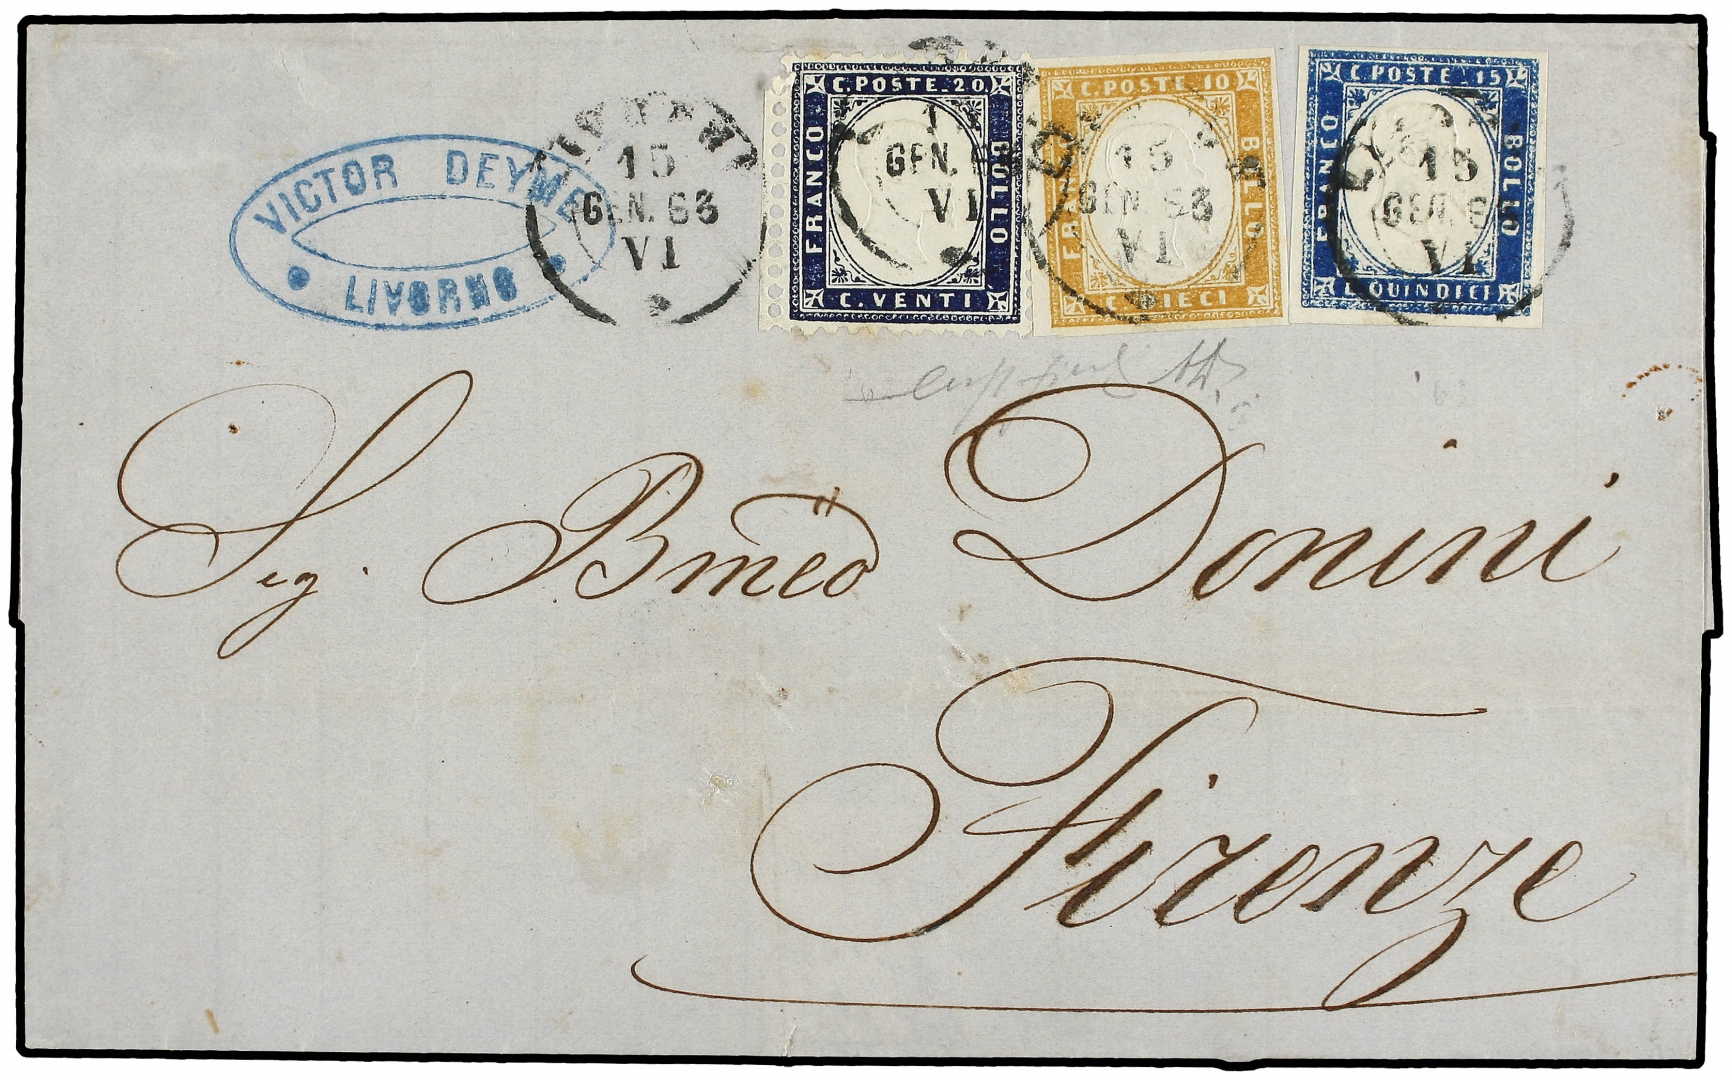 VICTOR DEYME
LIVORNO
15
GEN. 63
VI
C. POSTE. 20.
FRANCO
BOLLO
C. VENTI
GEN.
VI
C. POSTE 10
15
GEN 63
VI
C. POSTE. 15
FRANCO
BOLLO
15
VI
C. QUINDICI
Sig. Bmeo Donini
Firenze